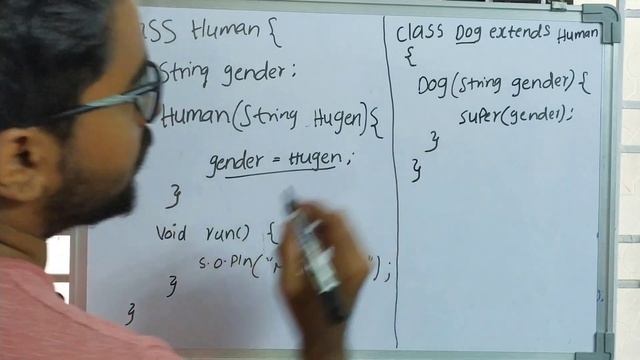 class Human {
String gender;
Human(String Hugen){
gender = Hugen;
}
void run() {
s.o.pln(" ");
}
}
class Dog extends Human
{
Dog(String gender){
super(gender);
}
}